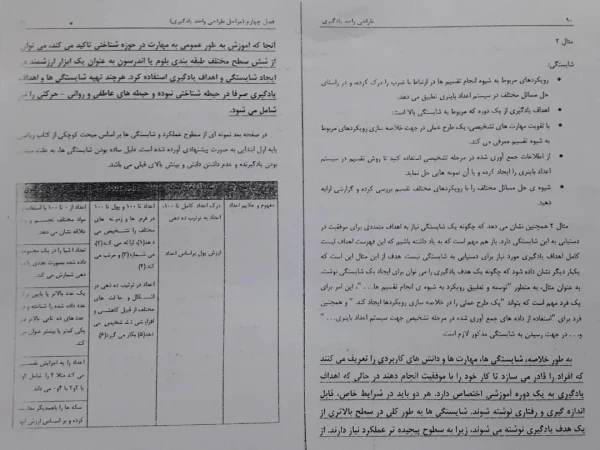 ۹۰ طراحی واحد یادگیری
مثال ۲
شایستگی:
رویکردهای مربوط به شیوه انجام تقسیم ها در ارتباط با ضرب را درک کرده، و در راستای
حل مسائل مختلف در سیستم اعداد باینری تطبیق می دهد.
اهداف یادگیری از یک دوره که مربوط به شایستگی بالا است:
با تقویت مهارت های تشخیصی، یک طرح عملی در جهت خلاصه سازی رویکردهای مربوط
به شیوه تقسیم معرفی می کند.
از اطلاعات جمع آوری شده در مرحله تشخیصی استفاده کنید تا روش تقسیم در سیستم
اعداد باینری را ایجاد کرده و با آن نمونه هایی حل نماید.
شیوه ی حل مسائل مختلف را با رویکردهای مختلف تقسیم بررسی کرده و گزارشی ارایه
دهید
مثال ۲ همچنین نشان می دهد که چگونه یک شایستگی نیاز به اهداف متعددی برای موفقیت در
دستیابی به این شایستگی دارد. باز هم مهم است که به یاد داشته باشیم که این فهرست اهداف لیست
کامل اهداف یادگیری مورد نیاز برای دستیابی به شایستگی نیست. هدف از این مثال این است که
یکبار دیگر نشان داده شود که چگونه یک هدف یادگیری را می توان برای ایجاد یک شایستگی نوشت.
به عنوان مثال، به منظور "توسعه و تطبیق رویکرد به شیوه ی انجام تقسیم ها ..."، این امر برای
یک فرد مهم است که بتواند "یک طرح عملی را در خلاصه سازی رویکردها ایجاد کند. " و همچنین
فرد برای "استفاده از داده های جمع آوری شده در مرحله تشخیص جهت سیستم اعداد باینری..."
و... در جهت رسیدن به شایستگی مذکور لازم است.
به طور خلاصه، شایستگی ها، مهارت ها و دانش های کاربردی را تعریف می کنند
که افراد را قادر می سازد تا کار خود را با موفقیت انجام دهند در حالی که اهداف
یادگیری به یک دوره آموزشی اختصاص دارد. هر دو باید در شرایط خاص، قابل
اندازه گیری و رفتاری نوشته شوند. شایستگی ها به طور کلی در سطح بالاتری از
یک هدف یادگیری نوشته می شوند، زیرا به سطوح پیچیده تر عملکرد نیاز دارند. از
فصل چهارم (مراحل طراحی واحد یادگیری)
آنجا که آموزش به طور عمومی به مهارت در حوزه شناختی تاکید می کند، می توان
از شش سطح مختلف طبقه بندی بلوم یا اندرسون به عنوان یک ابزار ارزشمند در
ایجاد شایستگی و اهداف یادگیری استفاده کرد. هرچند تهیه شایستگی ها و اهداف
یادگیری صرفا در حیطه شناختی نبوده و حیطه های عاطفی و روانی – حرکتی را نیز
شامل می شود.
در صفحه بعد نمونه ای از سطوح عملکرد و شایستگی ها بر اساس مبحث کوچکی از کتاب ریاضی
پایه اول ابتدایی به صورت پیشنهادی آورده شده است. دلیل ساده بودن شایستگی ها، به علت
بودن یادگیرنده و عدم داشتن دانش و بینش بالای قبلی می باشد.
مفهوم و علایم اعداد
درک اعداد کامل تا ۱۰۰
اعداد به ترتیب ده دهی
ارزش پول براساس اعداد
اعداد تا ۱۰۰ و پول تا ۱۰۰
در فرم ها و زمینه های
مختلف را تشخیص می
دهد(۱)، ارائه می کند(۲)،
می شمارد(۳) و مرتب می
کند(۴)
اعداد در ترتیب ده دهی در
اشکال و حالت های
مختلف از قبیل کاهشی و
افزایشی تشخیص می
دهد(۵) بکار می گیرد(۶)
اعداد از ۰ تا ۱۰۰ با استفاده
مواد مختلف تجسم و
علاقه نشان می دهد.
اعداد اشیا را در یک مجموعه
داده شده بصورت عددی
شمارش می کند.
یک عدد بالاتر یا پایین تر از
عدد داده شده را شناخته و
فرق های ده تایی بالاتر
یکی کمتر یا بیشتر عنوان می
کند
اعداد را به افزایش تقسیم
می کند مثلا ۴ را شامل
۲و۲ یا ۳و۱ می داند
سکه ها را باهمدیگر
کرده و بر اساس ارزش آنها